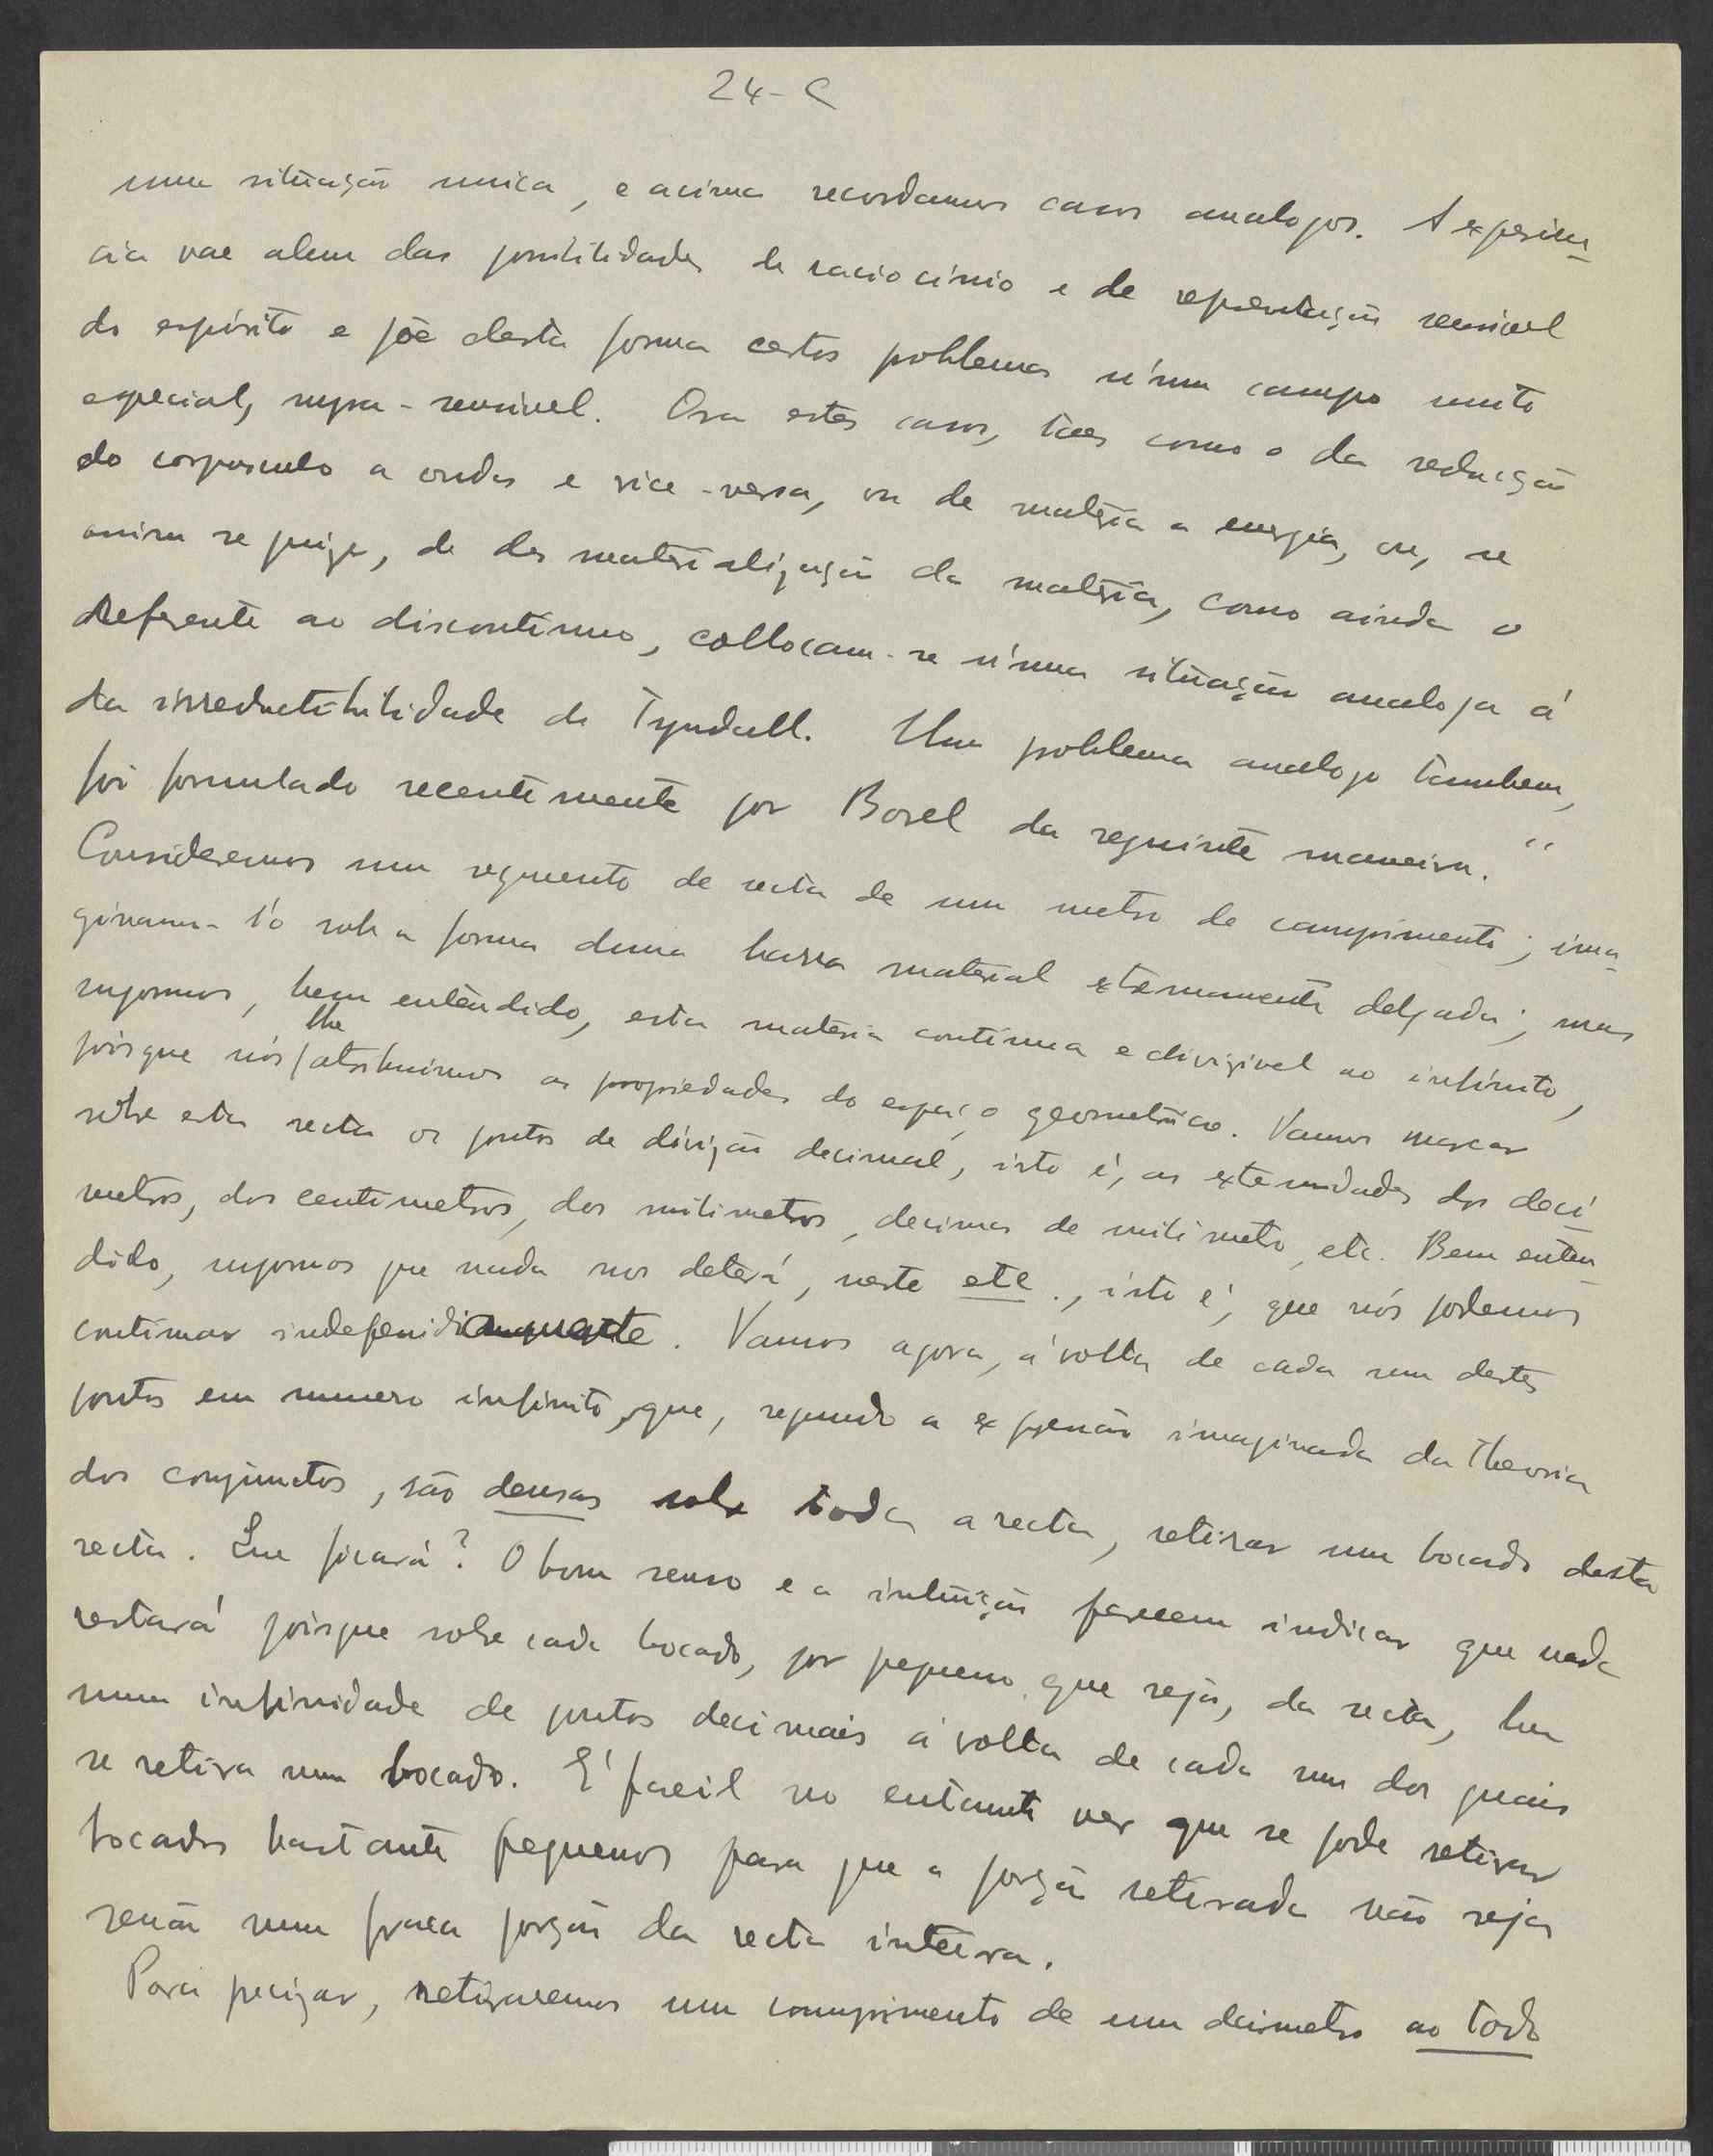 24-C
uma situação unica, e acima recordamos casos analogos. A experien-
cia vae alem das possibilidades de raciocinio e de representação sensivel
do espirito e põe desta forma certos problemas n'um campo muito
especial, supra-sensivel. Ora estes casos, taes como o da reducção
do corpusculo a ondas e vice-versa, ou de materia a energia, ou, se
assim se quizer, de desmaterialização da materia, como ainda o
referente ao discontinuo, collocam-se n'uma situação analoga á
da irreductibilidade de Tyndall. Um problema analogo tambem,
foi formulado recentemente por Borel da seguinte maneira. "
Consideremos um segmento de recta de um metro de comprimento; ima-
ginamo-l'o sob a forma duma barra material extremamente delgada; mas
supomos, bem entendido, esta materia continua e divizivel ao infinito,
poisque nós lhe atribuimos as propriedades do espaço geometrico. Vamos marcar
sobre esta recta os pontos de divizão decimal, isto é, as extremidades dos deci-
metros, dos centimetros, dos milimetros, decimas de milimetro, etc. Bem enten-
dido, supomos que nada nos deterá, neste etc., isto é, que nós podemos
continuar indefenidamente. Vamos agora, á volta de cada um destes
pontos em numero infinito, que, segundo a expressão imaginada da theoria
dos conjunctos, são densas sobre toda a recta, retirar um bocado desta
recta. Que ficará? O bom senso e a intuição parecem indicar que nada
restará poisque sobre cada bocado, por pequeno que seja, da recta, ha
uma infinidade de pontos decimais á volta de cada um dos quais
se retira um bocado. E' facil no entanto ver que se pode retirar
bocados bastante pequenos para que a porção retirada não seja
senão uma fraca porção da recta inteira.
Para precizar, retiraremos um comprimento de um decimetro ao todo